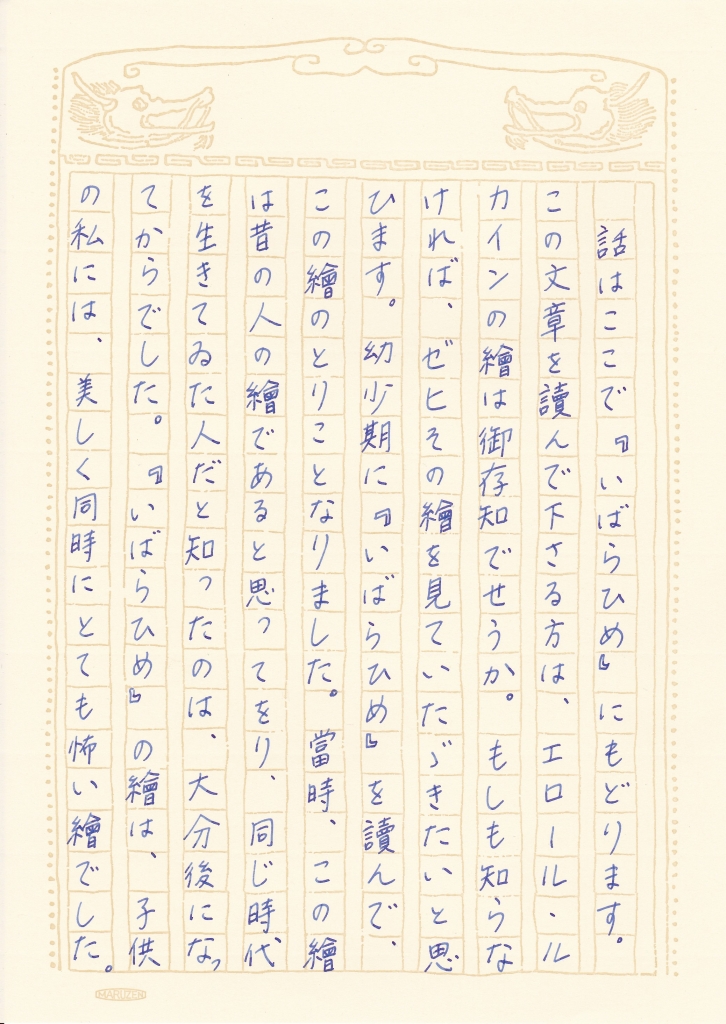 話はここで『いばらひめ』にもどります。
この文章を讀んで下さる方は、エロール・ル
カインの繪は御存知でせうか。もしも知らな
ければ、ゼヒその繪を見ていたゞきたいと思
ひます。幼少期に『いばらひめ』を讀んで、
この繪のとりことなりました。當時、この繪
は昔の人の繪であると思ってをり、同じ時代
を生きてゐた人だと知ったのは、大分後になっ
てからでした。『いばらひめ』の繪は、子供
の私には、美しく同時にとても怖い繪でした。
MARUZEN